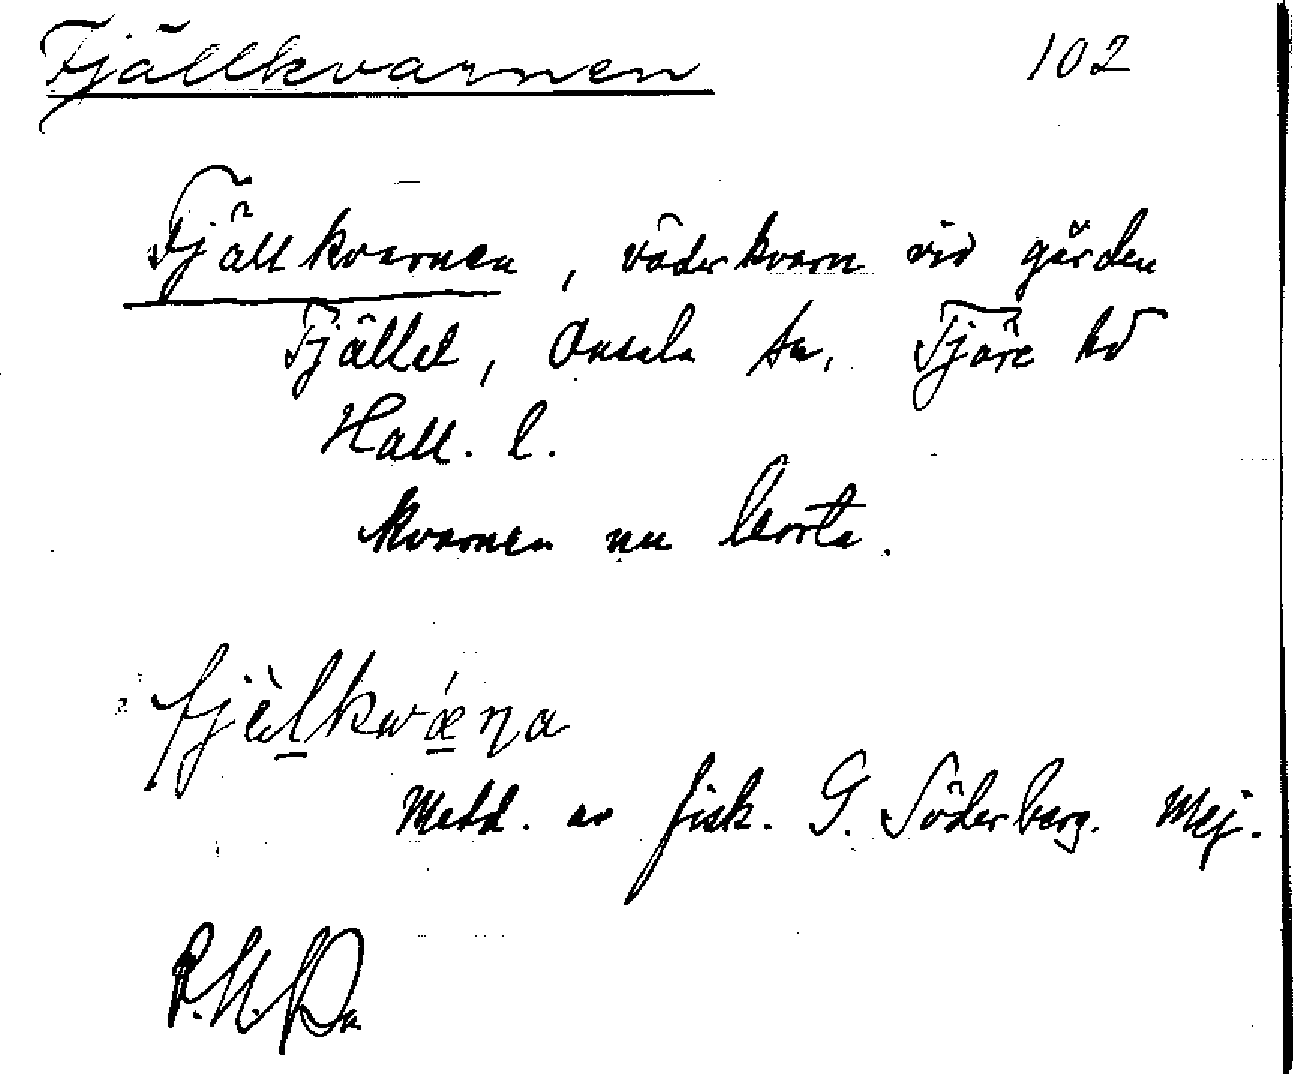 Fjällkvarnen 102
Fjällkvarnen, väderkvarn vid gården
Fjället, Onsala sn, Fjäre hd
Hall. l.
kvarnen nu borta.
fjèlkwǽɳa
Medd. av fisk. G. Söderberg. Mej.